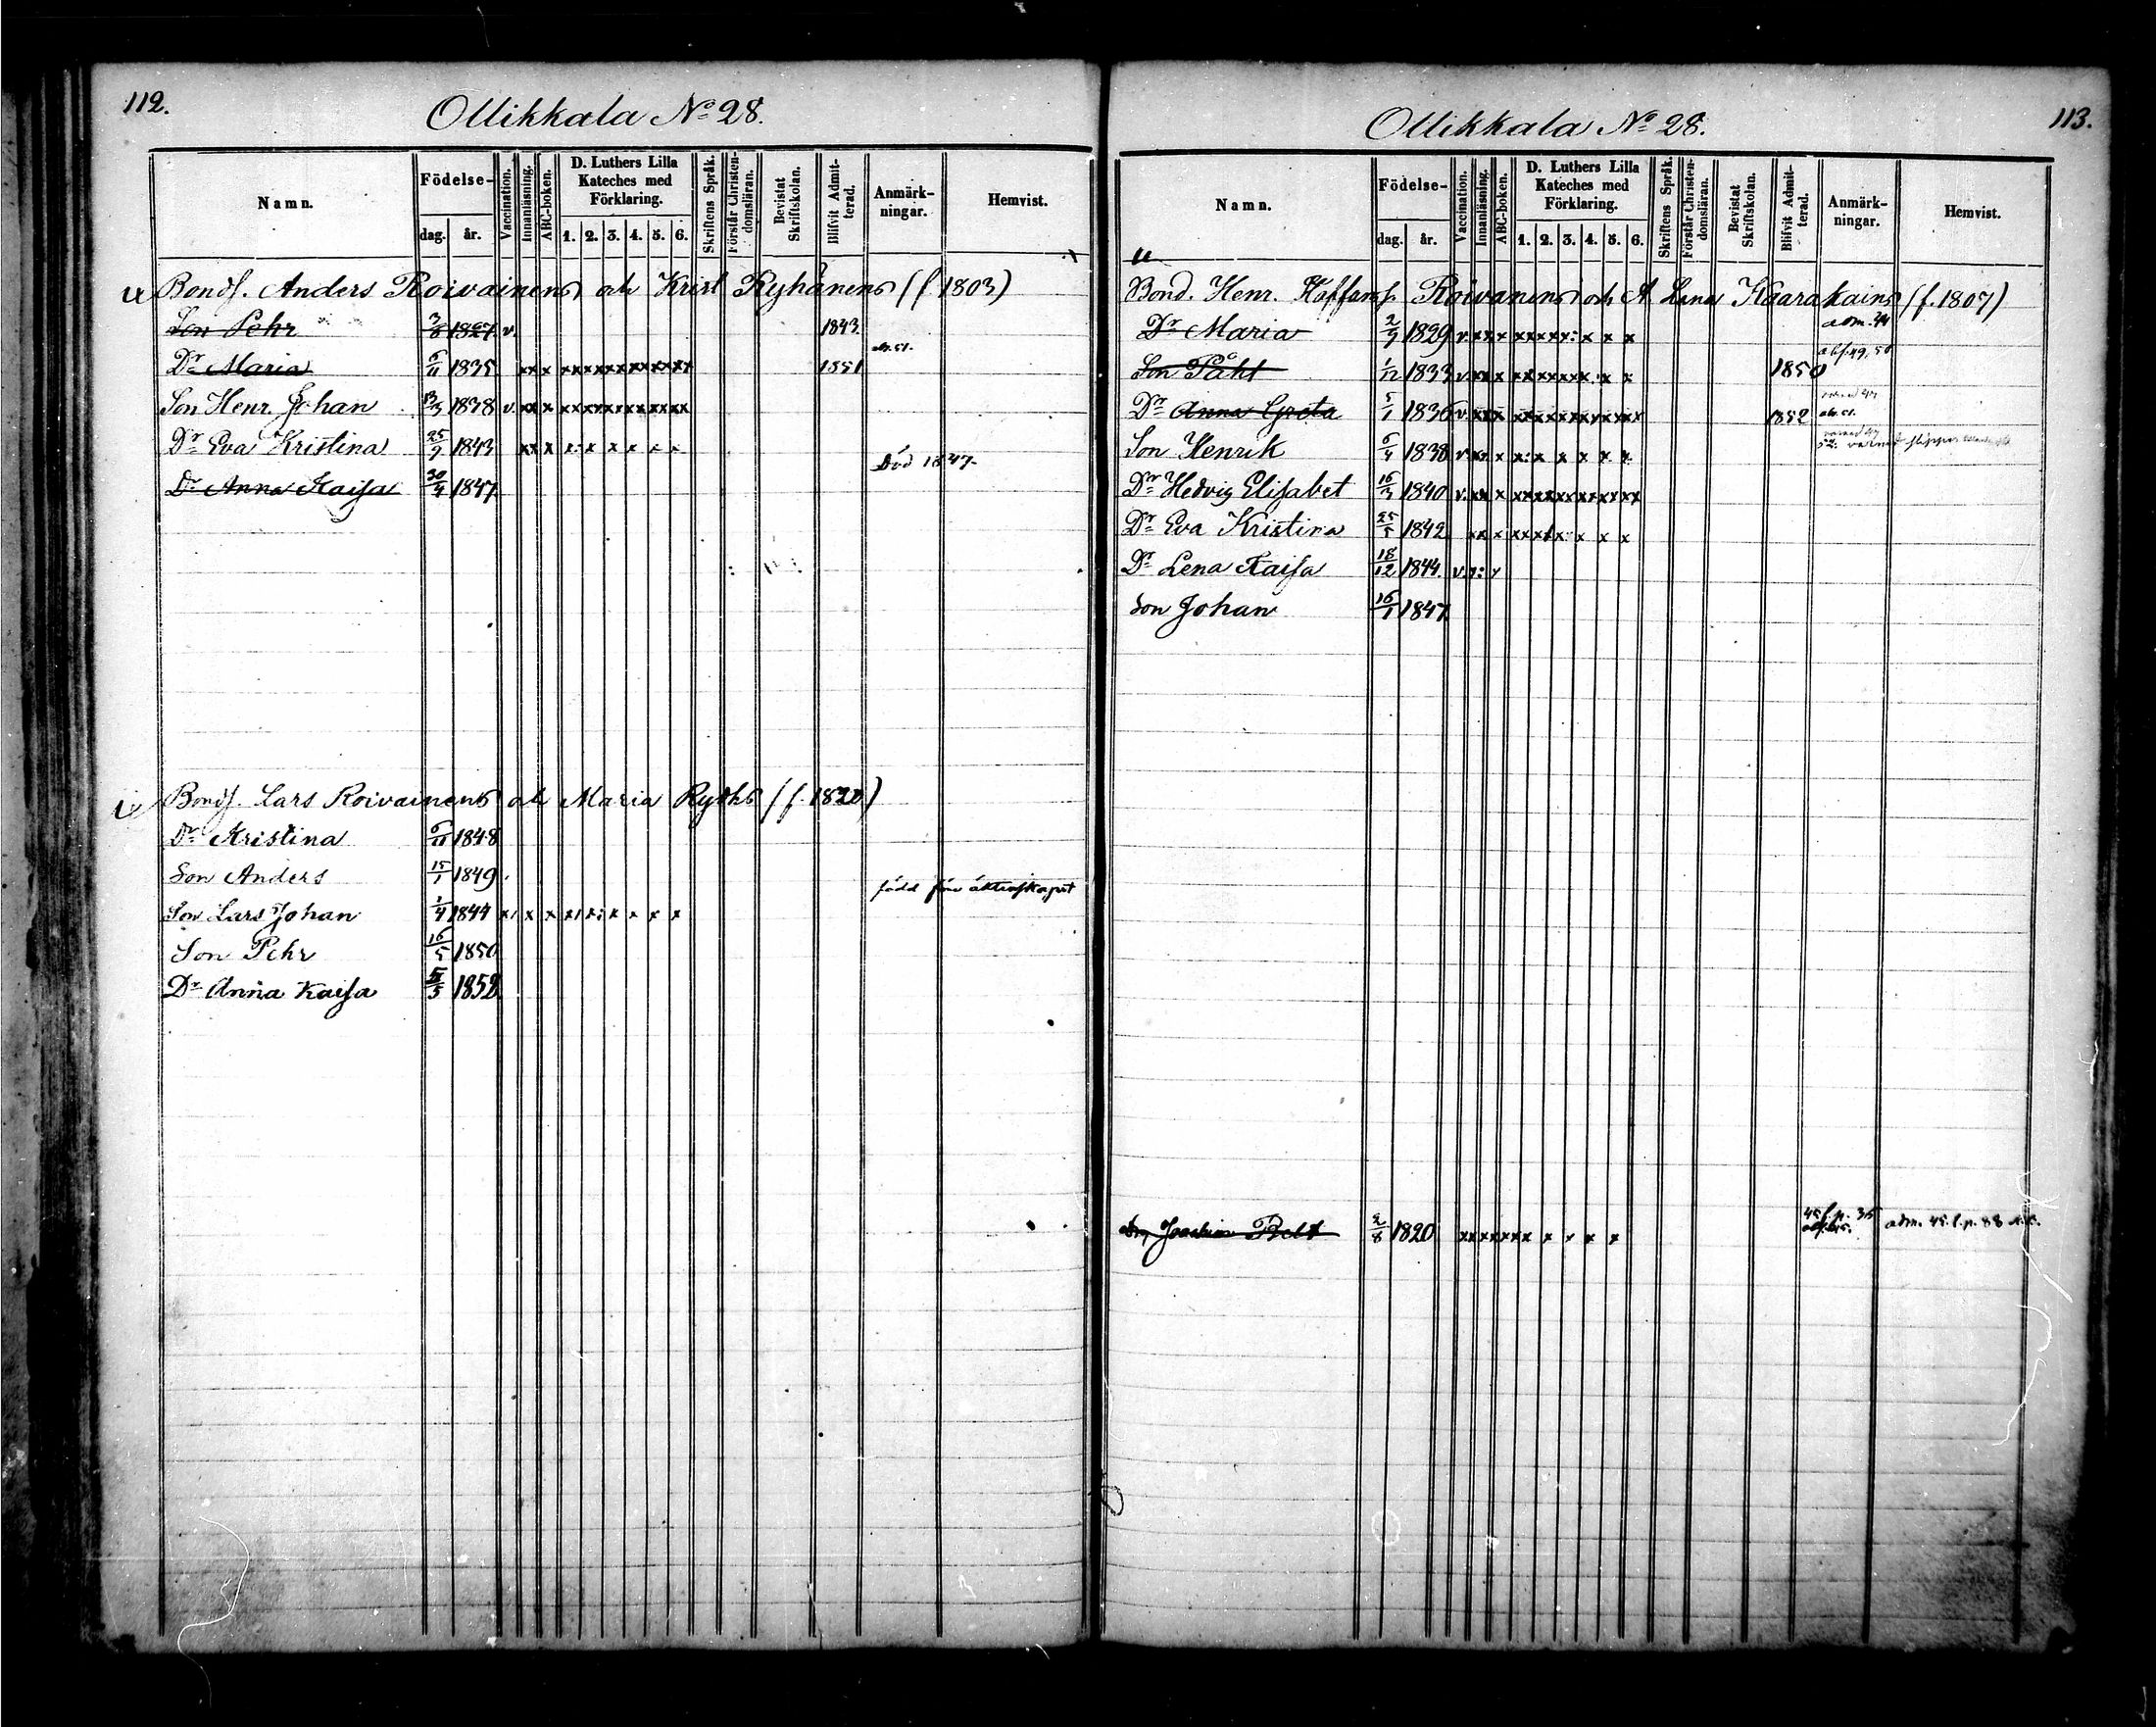 112.
Ollikkala No 28.
Namn.
Födelse-
dag. år.
Vaccination.
Innanläsning.
ABC-boken.
D. Luthers Lilla
Kateches med
Förklaring.
1. 2. 3. 4. 5. 6.
Skriftens Språk.
Förstår Christen-
domsläran.
Bevistat
Skriftskolan.
Blifvit Admit-
terad.
Anmärk-
ningar.
Hemvist.
Bondf. Anders Roivainens och Krist Ryhänens (f 1803)
Son Pehr 3/8 1827 v. 1843
Dr Maria 6/11 1835 xx x xxxxxxxxxxxx 1851
Son Henr Johan 13/3 1838 v. xx x xxxxxxxxxxxx
Dr Eva Kristina 25/9 1843 xx x x: x x x x x
Död 1847.
Dr Anna Kaisa 30/4 1847
Bondf. Lars Roivainens och Maria (f. 1820)
Dr Kristina 6/11 1848
Son Anders 15/1 1849
född före äktenskapet
Son Lars Johan 1/4 1844 x x x x x: x x x x
Son Pehr 16/5 1850
Dr Anna Kaisa 5/5 1852
113.
Ollikkala No 28.
Namn.
Födelse-
dag. år.
Vaccination.
Innanläsning.
ABC-boken.
D. Luthers Lilla
Kateches med
Förklaring.
1. 2. 3. 4. 5. 6.
Skriftens Språk.
Förstår Christen-
domsläran.
Bevistat
Skriftskolan.
Blifvit Admit-
terad.
Anmärk-
ningar.
Hemvist.
Bond. Henr. Roivanens och A Lena Kaarakains (f. 1807)
Dr Maria 2/9 1829 v. xx x xxxxx: x x x adm. 44
Son Påhl 1/12 1833 v. xx x xxxxxxx x x 1850
Dr Anna Greta 5/1 1836 v. xx x xxxxxxxxxxxx 1852
Son Henrik 6/4 1838 v. xx x x: x x x x x
Dr Hedvig Elisabet 16/3 1840 v. xx x xxxxxxxxxxxx
Dr Eva Kristina 25/5 1842 xx x xxxxx: x x x
Dr Lena Kaisa 18/12 1844. v.
Son Johan 16/1 1847
Joachim 2/8 1820 xxxxxxx x x x x adm. 45.